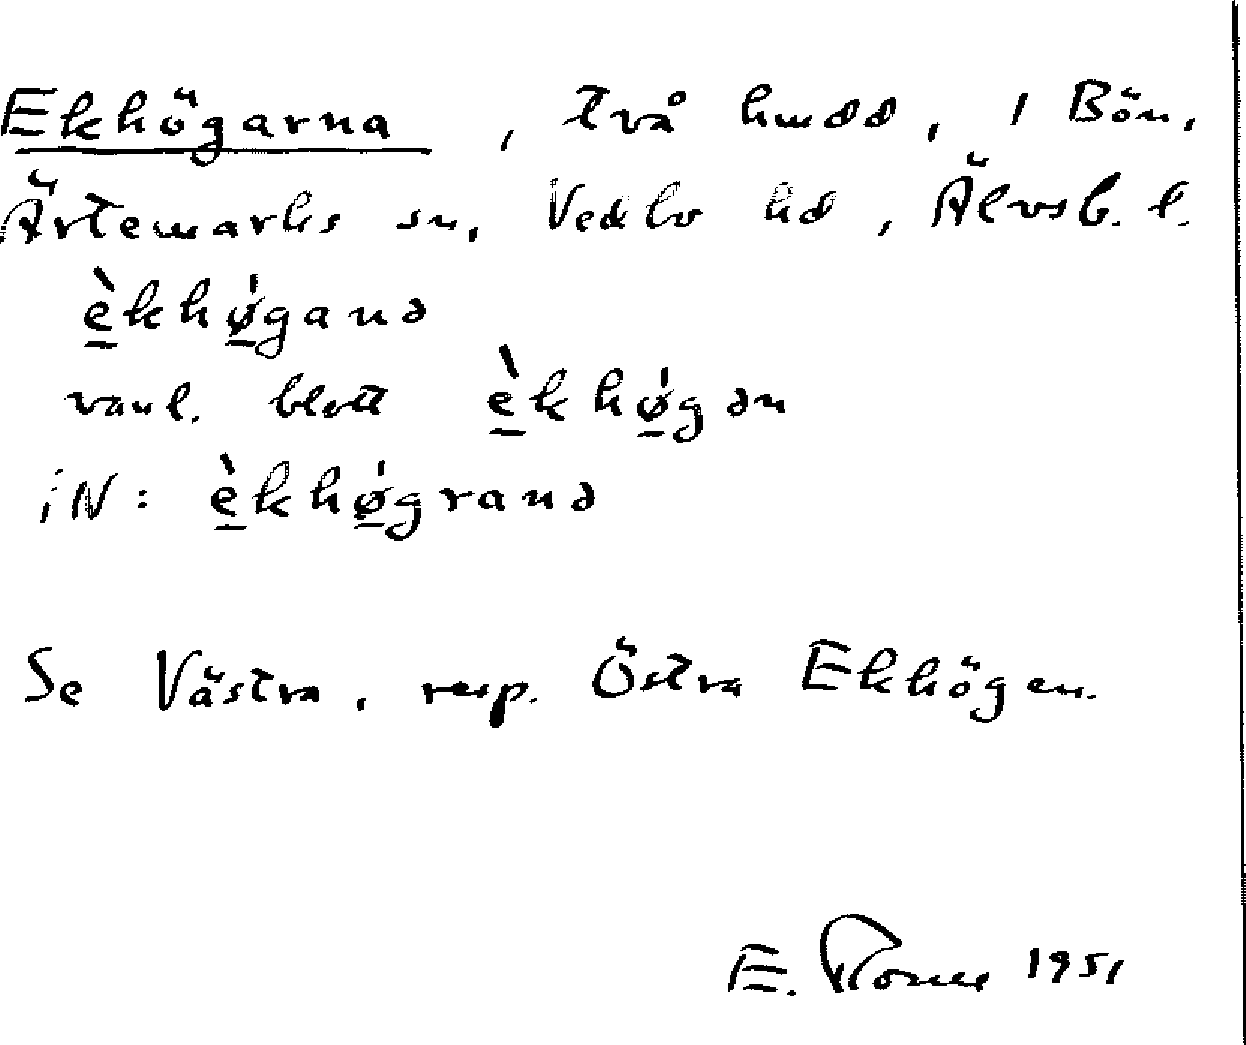 Ekhögarna, två hmdd, i Bön,
Ärtemarks sn, Vedbo hd, Älvsb. l.
è̱khǿ̱ganə
vanl. blott è̱khǿ̱gən
iN: è̱khǿ̱granə
Se Västra, resp. Östra Ekhögen.
E. 1951